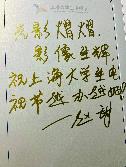 光影熠熠，
影像生辉
祝上海大学生电
视节越办越好！